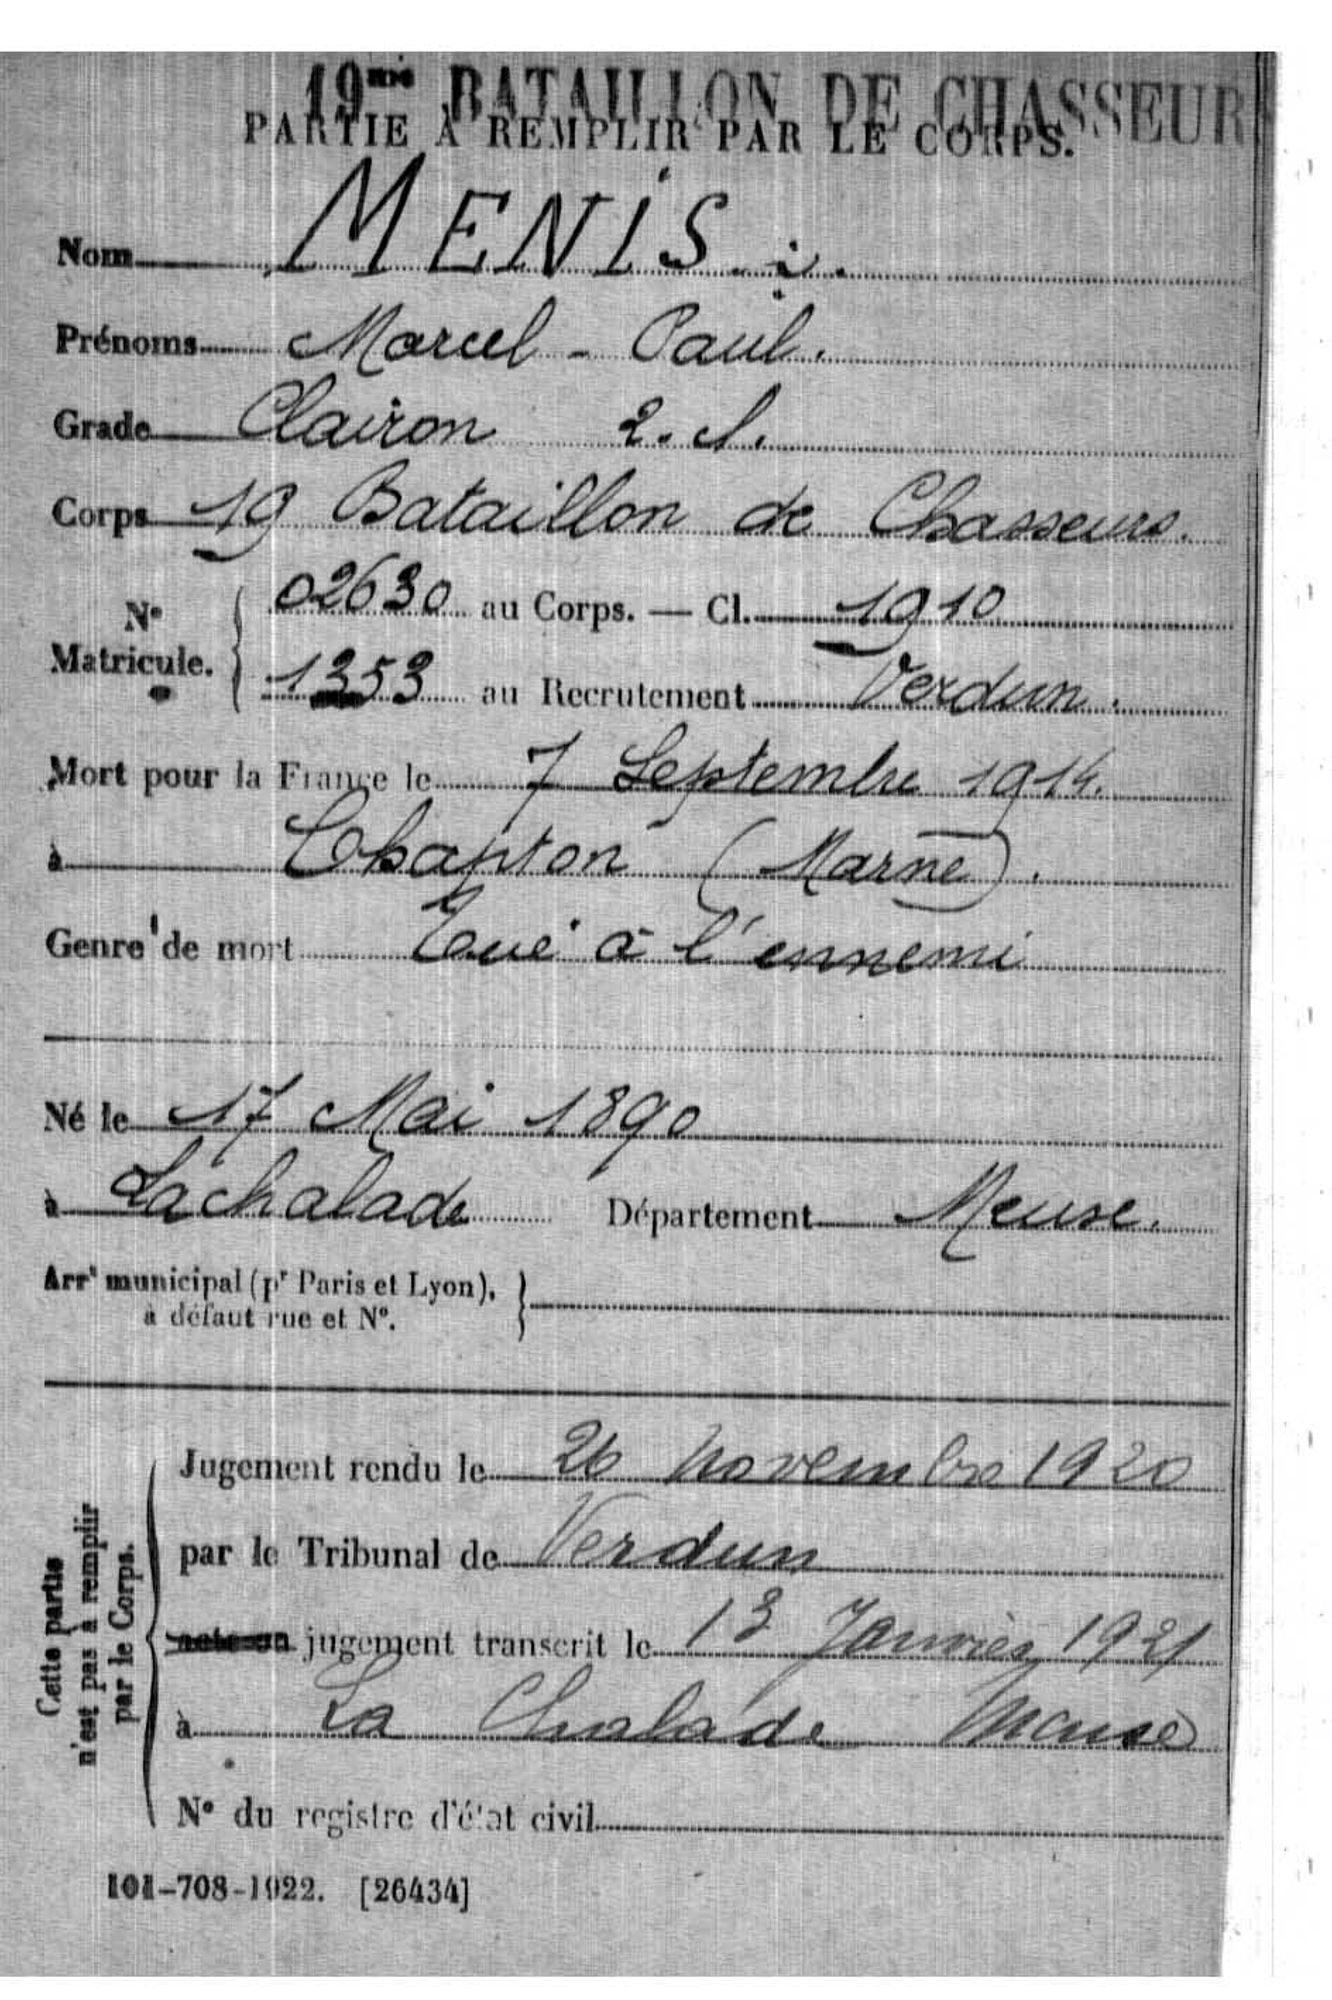 19me BATAILLON DE CHASSEUR
PARTIE À REMPLIR PAR LE CORPS.
Nom MENIS
Prénoms Marcel - Paul.
Grade Clairon 2. cl.
Corps 19 Bataillon de Chasseurs.
N° Matricule. 02630 au Corps. — Cl. 1910
1353 au Recrutement Verdun.
Mort pour la France le 7 Septembre 1914.
à Chapton (Marne).
Genre de mort Tué à l'ennemi
Né le 17 Mai 1890
à Lachalade Département Meuse.
Arrt municipal (pr Paris et Lyon),
à défaut rue et N°.
Cette partie
n'est pas à remplir
par le Corps.
Jugement rendu le 26 novembre 1920
par le Tribunal de Verdun
acte ou jugement transcrit le 13 Janvier 1921
à La Chalade Meuse
N° du registre d'état civil
101-708-1922. [26434]